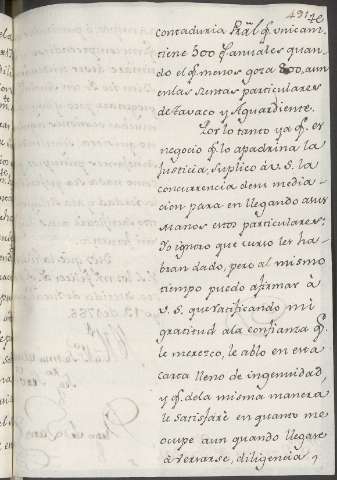 491
contaduria Gral q.e unicam.te
tiene 500 p.s anuales quan
do el q.e menos goza 800, aun
en las Rentas particulares
de Tavaco y Aguardiente.
Por lo tanto ya q.e es
negocio q.e lo apadrina la
Justicia, suplico à V. S. la
concurrencia de su media
cion para en llegando a sus
Manos estos particulares:
Yo ignoro que curso les ha
bran dado, pero al mismo
tiempo puedo afirmar à
V. S. que ratificando mi
gratitud a la confianza q.e
le merezco, le ablo en esta
carta lleno de ingenuidad,
y q.e de la misma manera
le satisfarè en quanto me
ocupe aun quando llegare
à versarse, diligencia